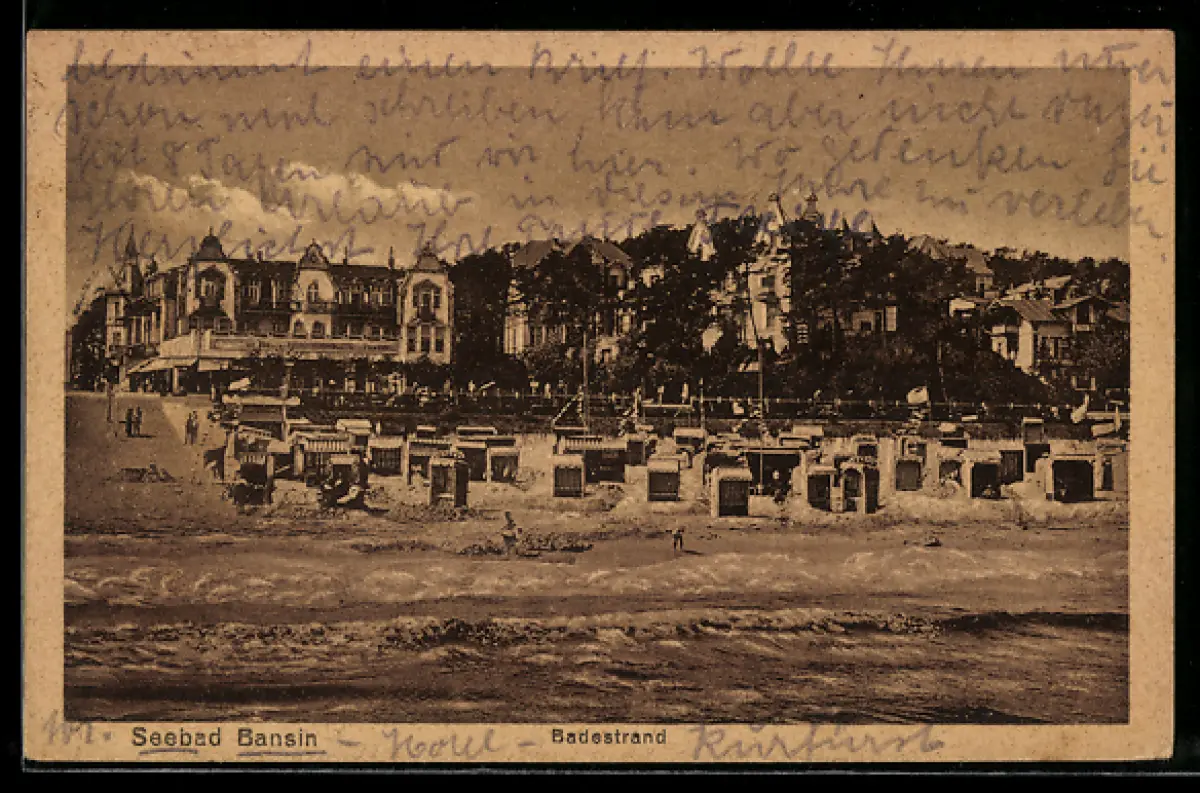 bestimmt einen Brief. Wollte Ihnen immer
schon mal schreiben, kam aber nicht dazu
seit 8 Tagen sind wir hier. Wo gedenken Sie
Ihren Urlaub in diesem Jahre zu verleben
Herzlichst Ihre
Seebad Bansin - Hotel - Badestrand Kurfürst